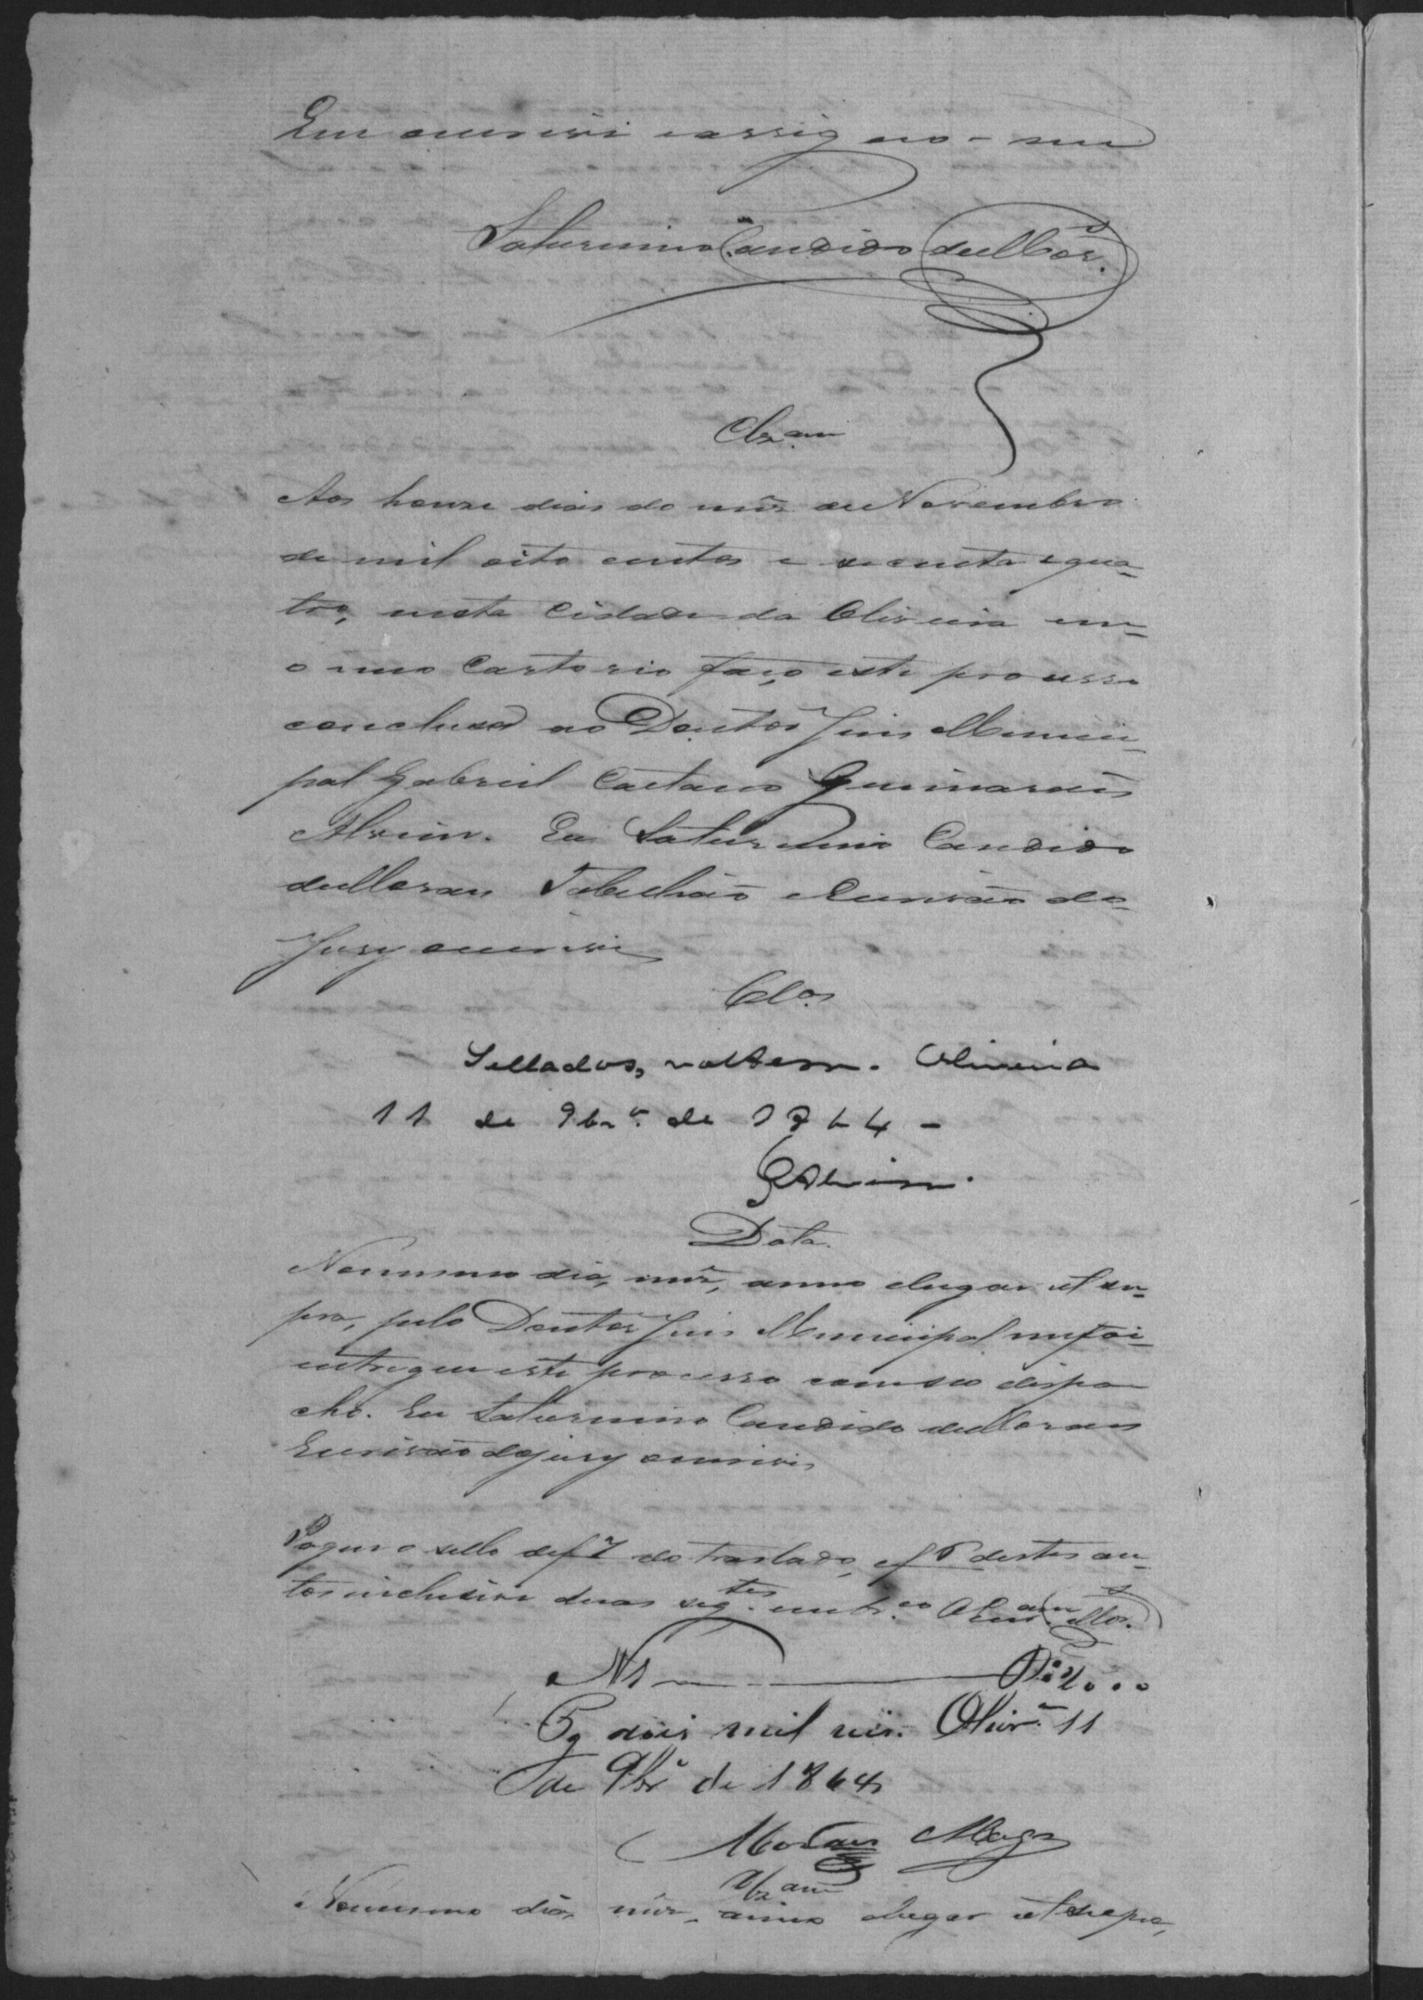 Eu escrevi e assigno-me
Saturnino Candido de Mor.
Clzam
Aos honze dias do mez de Novembro
de mil oito centos e secenta e qua-
tro, nesta Cidade da Oliveira em
o meu Cartorio faço este processo
concluso ao Doutor Juis Munici-
pal Gabriel Caetano Guimarães
Alvim. Eu Saturnino Candido
de Moraes Tabelião e Escrivão do
Jury escrevi
Clos
Sellados, voltem. Oliveira
11 de 9br.º de 1864 -
GAlvim.
Data.
No mesmo dia, mez, anno e lugar ut su-
pra, pelo Doutor Juis Municipal me foi
entregue este processo com seo dispa
cho. Eu Saturnino Candido de Moraes
Escrivão do jury escrevi
Pagou o sello de f 7 do traslado, e f destes au-
tos inclusive duas seg.tes em br.co O Mor.
N 1 2000
Pg dois mil reis. Olivrª 11
de 9br de 1864
Moraes
Clzam
No mesmo dia, mez, anno e lugar ut supra,